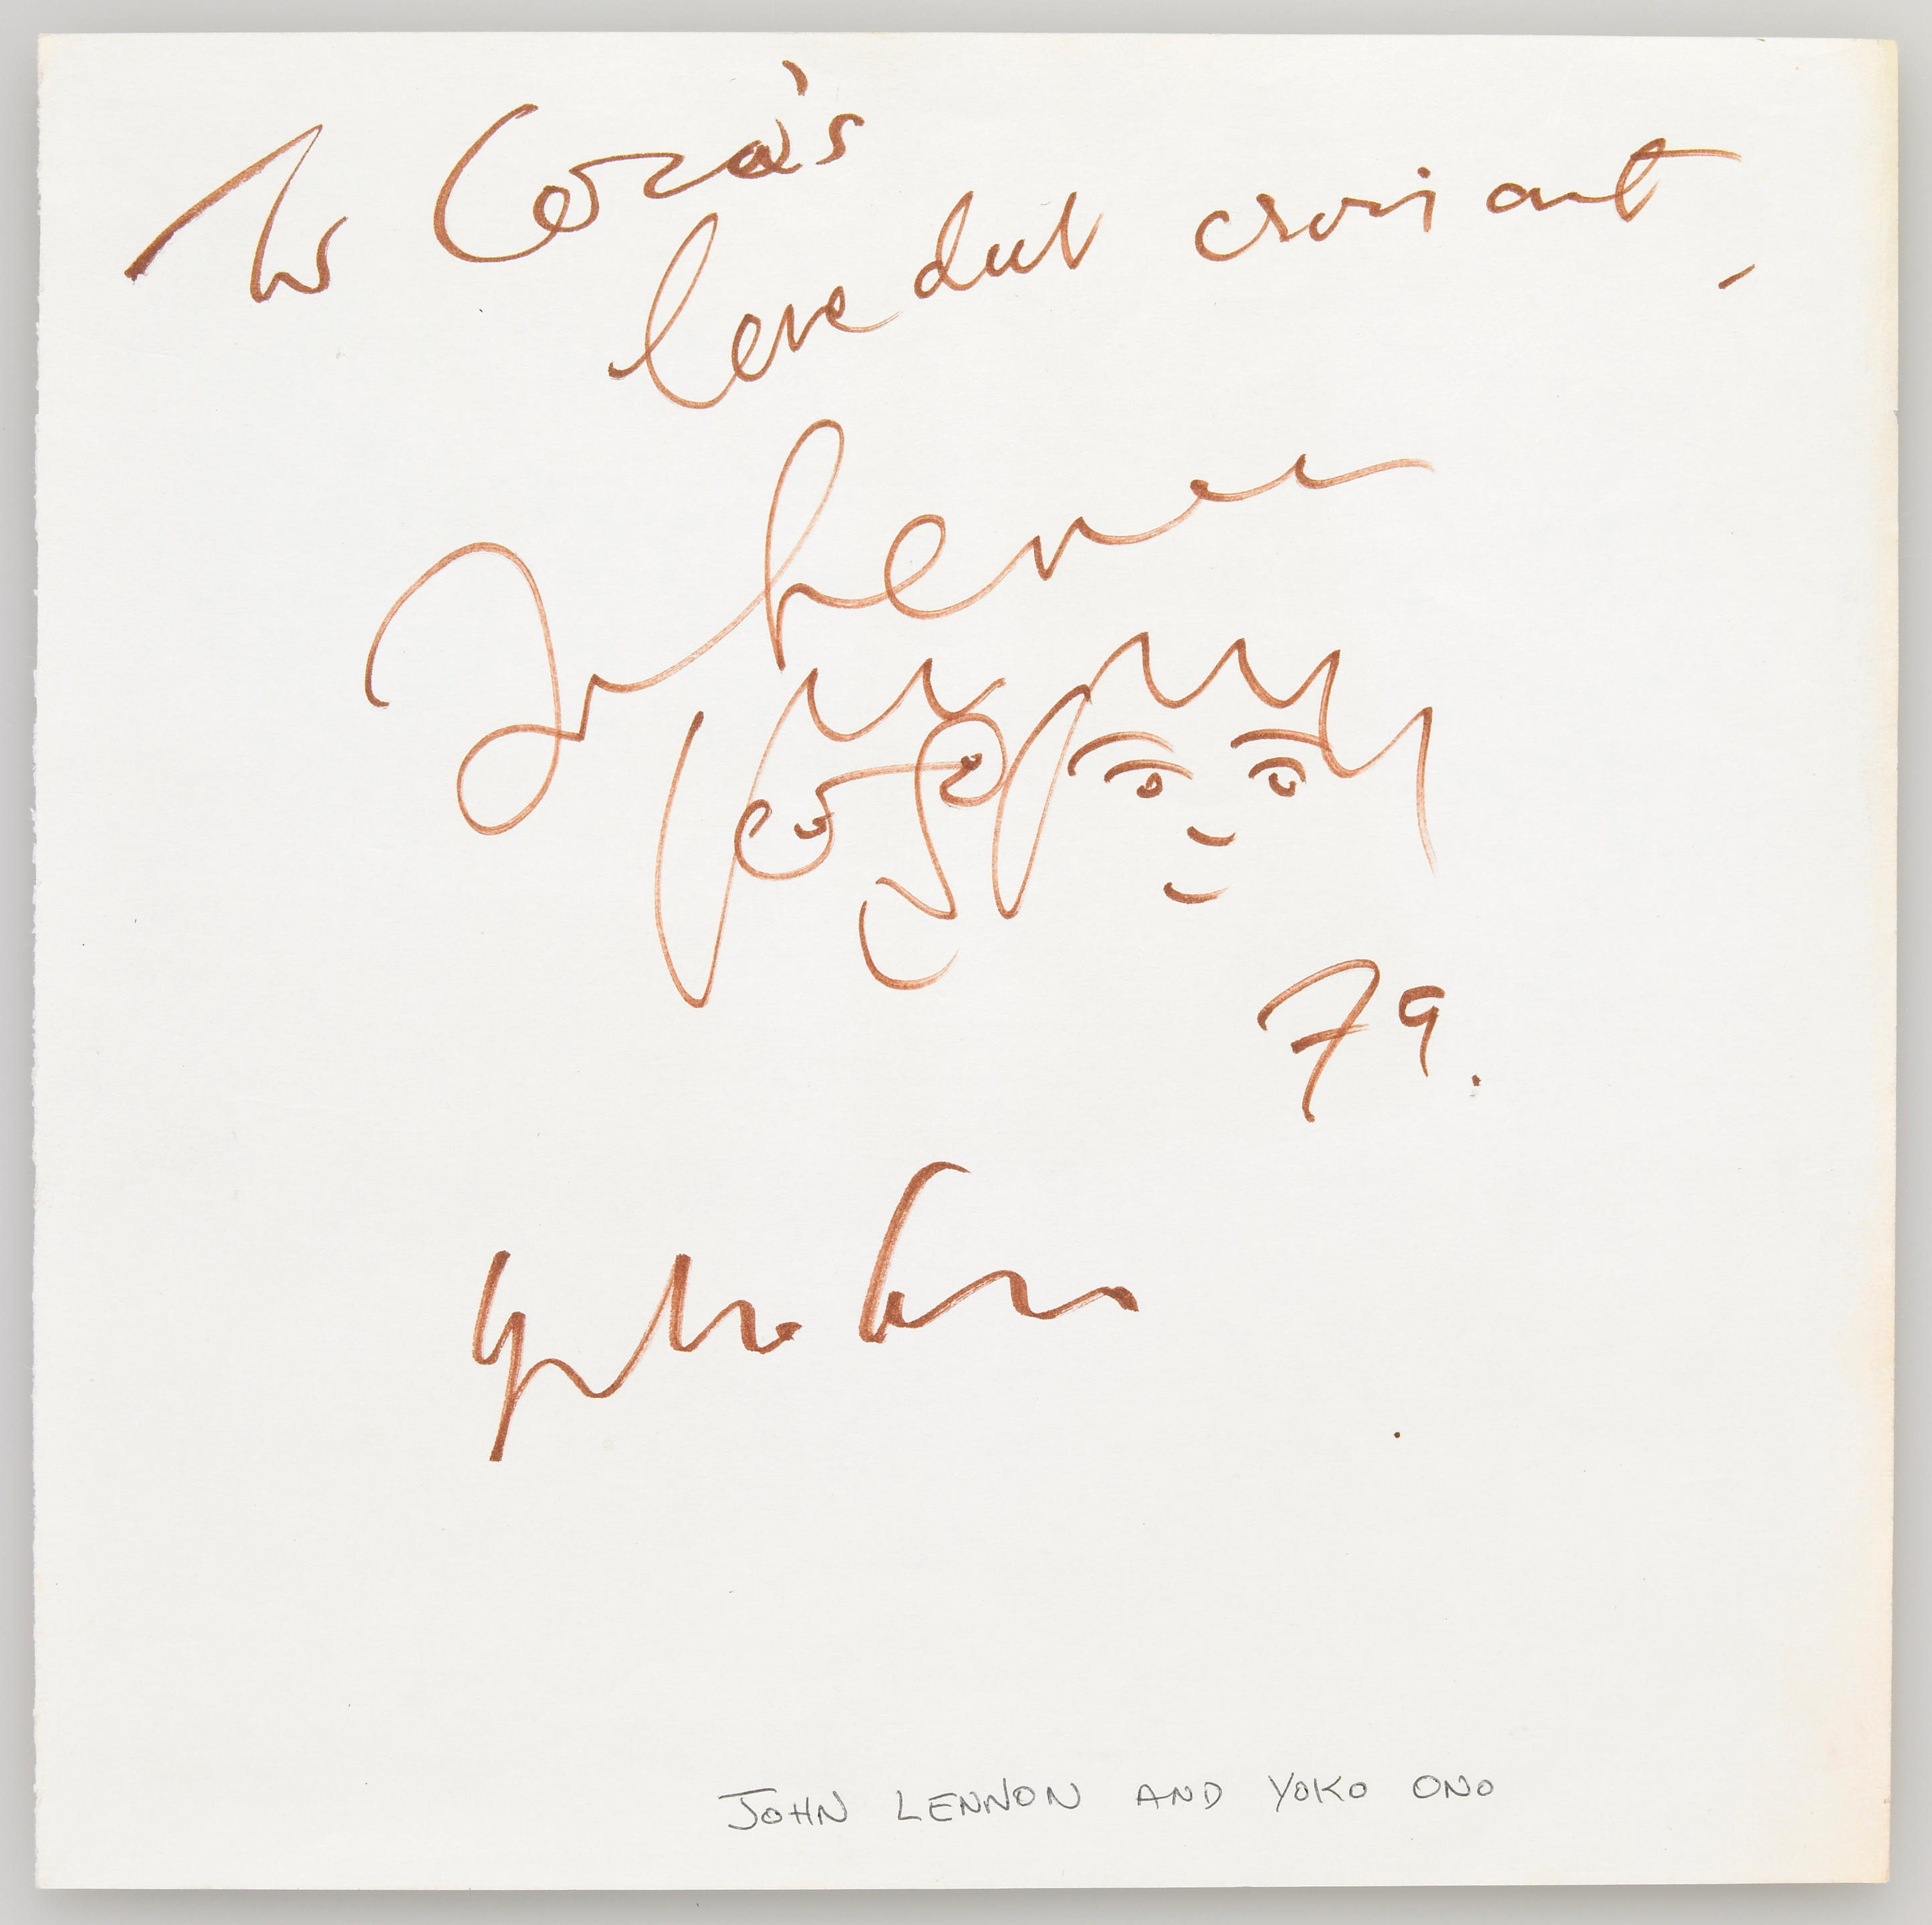 To Cora's
love croisant
John Lennon
79.
Yoko Ono
JOHN LENNON AND YOKO ONO